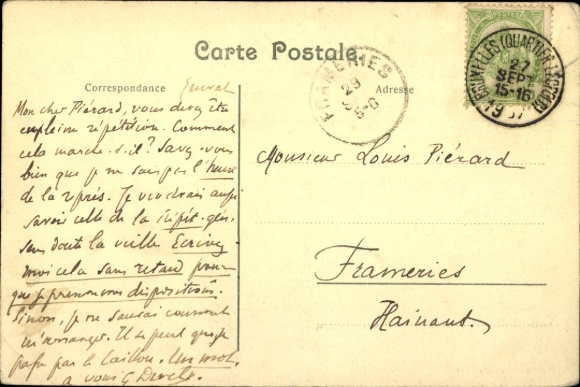 Carte Postale.
Correspondance
Adresse
FRAMERIES
29
BRUXELLES (QUARTIER LÉOPOLD)
27
SEPT
15-16
Mon cher Piérard, vous devez être
en pleine répétition. Comment
cela marche-t-il? Savez-vous
bien que je ne sais pas l'heure
de la représ. Je voudrais aussi
savoir celle de la répét. gén.
sans doute la veille. Ecrivez-
moi cela sans retard pour
que je prenne mes dispositions.
Sinon, je ne saurais comment
m'arranger. Il se peut que je
passe par le Caillou. Un mot.
à vous
Monsieur Louis Piérard
Frameries
Hainaut.